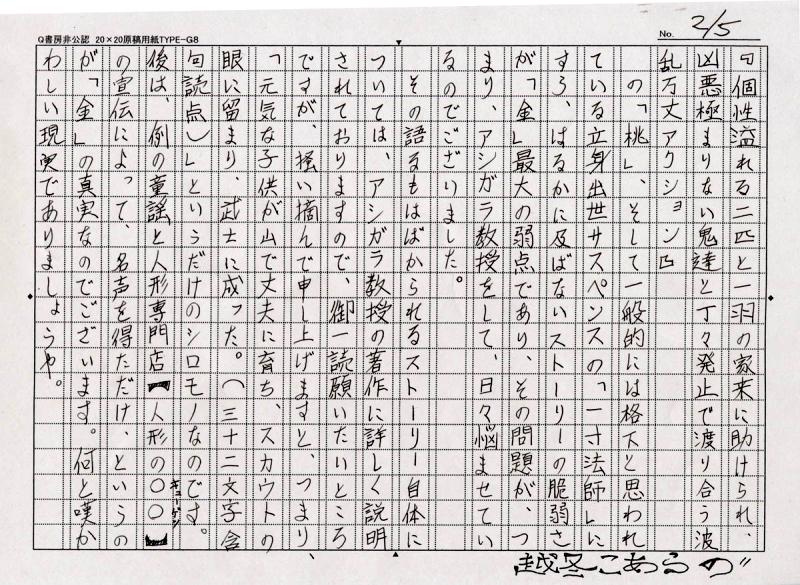 Q書房非公認 20×20原稿用紙TYPE-G8
No. 2/5
『個性溢れる二匹と一羽の家来に助けられ、
凶悪極まりない鬼達と丁々発止で渡り合う波
乱万丈アクション』
の「桃」、そして一般的には格下と思われ
ている立身出世サスペンスの「一寸法師」に
すら、はるかに及ばないストーリーの脆弱さ
が「金」最大の弱点であり、その問題が、つ
まり、アシガラ教授をして、日々悩ませてい
るのでございました。
その語るもはばかられるストーリー自体に
ついては、アシガラ教授の著作に詳しく説明
されておりますので、御一読願いたいところ
ですが、掻い摘んで申し上げますと、つまり、
「元気な子供が山で丈夫に育ち、スカウトの
眼に留まり、武士に成った。（三十二文字含
句読点）」というだけのシロモノなのです。
後は、例の童謡と人形専門店【人形の〇〇】
キューゲツ
の宣伝によって、名声を得ただけ、というの
が「金」の真実なのでございます。何と嘆か
わしい現実でありましょうや。
越冬こあらの"